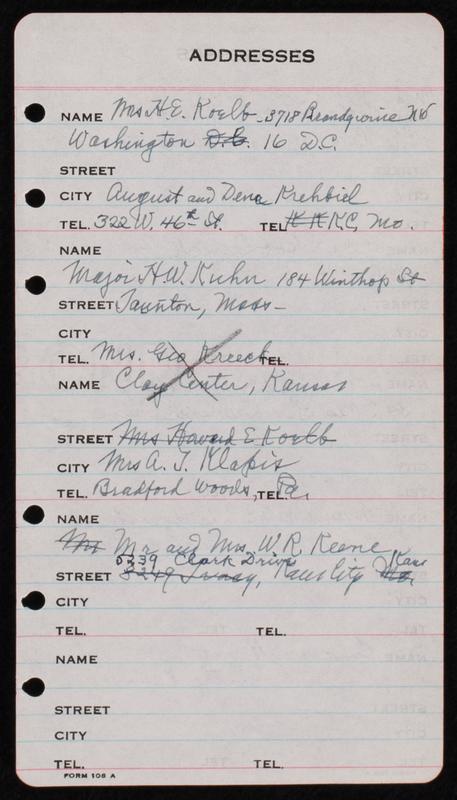 ADDRESSES
NAME Mrs H. E. Koelb - 3718 Brandywine NW
Washington D.C. 16 D.C.
STREET
CITY August and Dena Krehbiel
TEL. 322 W. 46th St. TEL. K K K.C. Mo.
NAME
Major H. W. Kuhn 184 Winthrop St
STREET Taunton, Mass -
CITY
TEL. Mrs. Geo Kreeck TEL.
NAME Clay Center, Kansas
STREET Mrs Havard E Koelb
CITY Mrs A. T. Klapis
TEL. Bradford Woods, TEL. Pa.
NAME
Mrs Mr and Mrs. W. R. Keene
5239 Clark Drive Kans
STREET 5249 Kans City Mo.
CITY
TEL. TEL.
NAME
STREET
CITY
TEL. TEL.
FORM 106 A